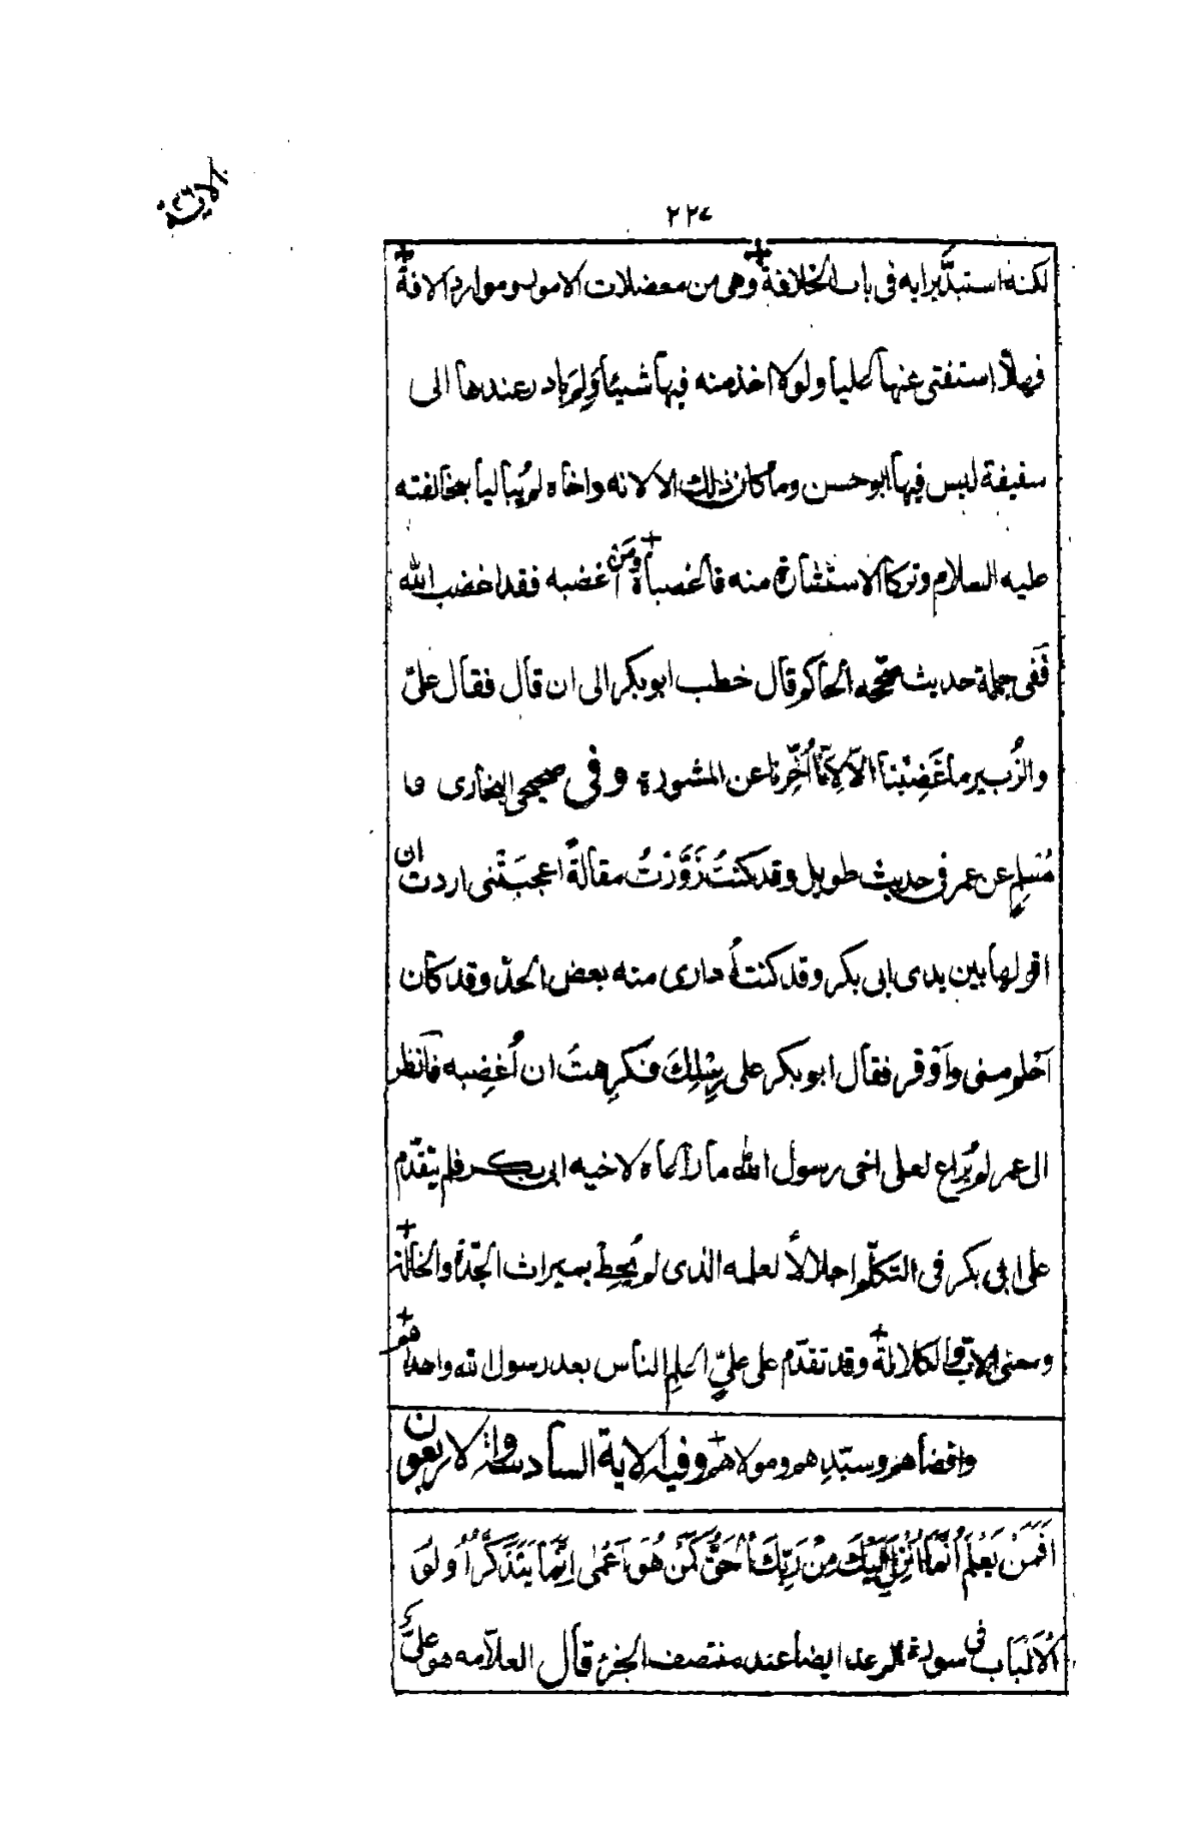 ٢٢٧
الآية
لكنه استبدّ برايه فى باب الخلافة وهى من معضلات الامور وموارد الافة
فهلّا استفتى عنها عليا ولولا اخذ منه فيها شيئا ولم يبادر عندها الى
سقيفة ليس فيها ابو حسن وما كان ذلك الا لانه واخاه لم يُباليا بمخالفته
عليه السلام وتركا الاستشارة منه فاغضباه ومن اغضبه فقد اغضب الله
فَفى جملة حديث صحّحه الحاكم قال خطب ابو بكر الى ان قال فقال علىّ
والزُبير ما غَضِبْنا الّا لِانّا اُخِّرنا عن المشورة وفى صحيحى البخارى و
مُسلِم عن عمر فى حديث طويل وقد كنتُ زَوَّرْتُ مقالةً اعجبَتْنى اردت ان
اقولها بين يدى ابى بكر وقد كنتُ اُدارى منه بعض الحدّ وقد كان
اَحْلم منى واَوْقر فقال ابو بكر على رِسْلِكَ فكرِهتُ ان اُغضِبه فانظر
الى عمر لم يُراع لعلى اخى رسول الله ما راعاه لاخيه ابى بكر فلم يتقدّم
على ابى بكر فى التكلّم اجلالاً لعلمه الذى لم يُحِط بميراث الجدّة والخالة
ومعنى الابّ والكلالة وقد تقدّم على علىّ اعلمِ الناس بعد رسول الله واحدا فهو
واقضاهم وسيّدِهم ومولاهم وفيه الاية السادسة والاربعون
اَفَمَنْ يَعْلَمُ اَنَّمَا اُنْزِلَ اِلَيْكَ مِنْ رَبِّكَ الْحَقُّ كَمَنْ هُوَ اَعْمٰى اِنَّمَا يَتَذَكَّرُ اُولُوا
الْاَلْبَابِ فى سورة الرعد ايضا عند منتصف الجزء قال العلاّمه هو علىّ